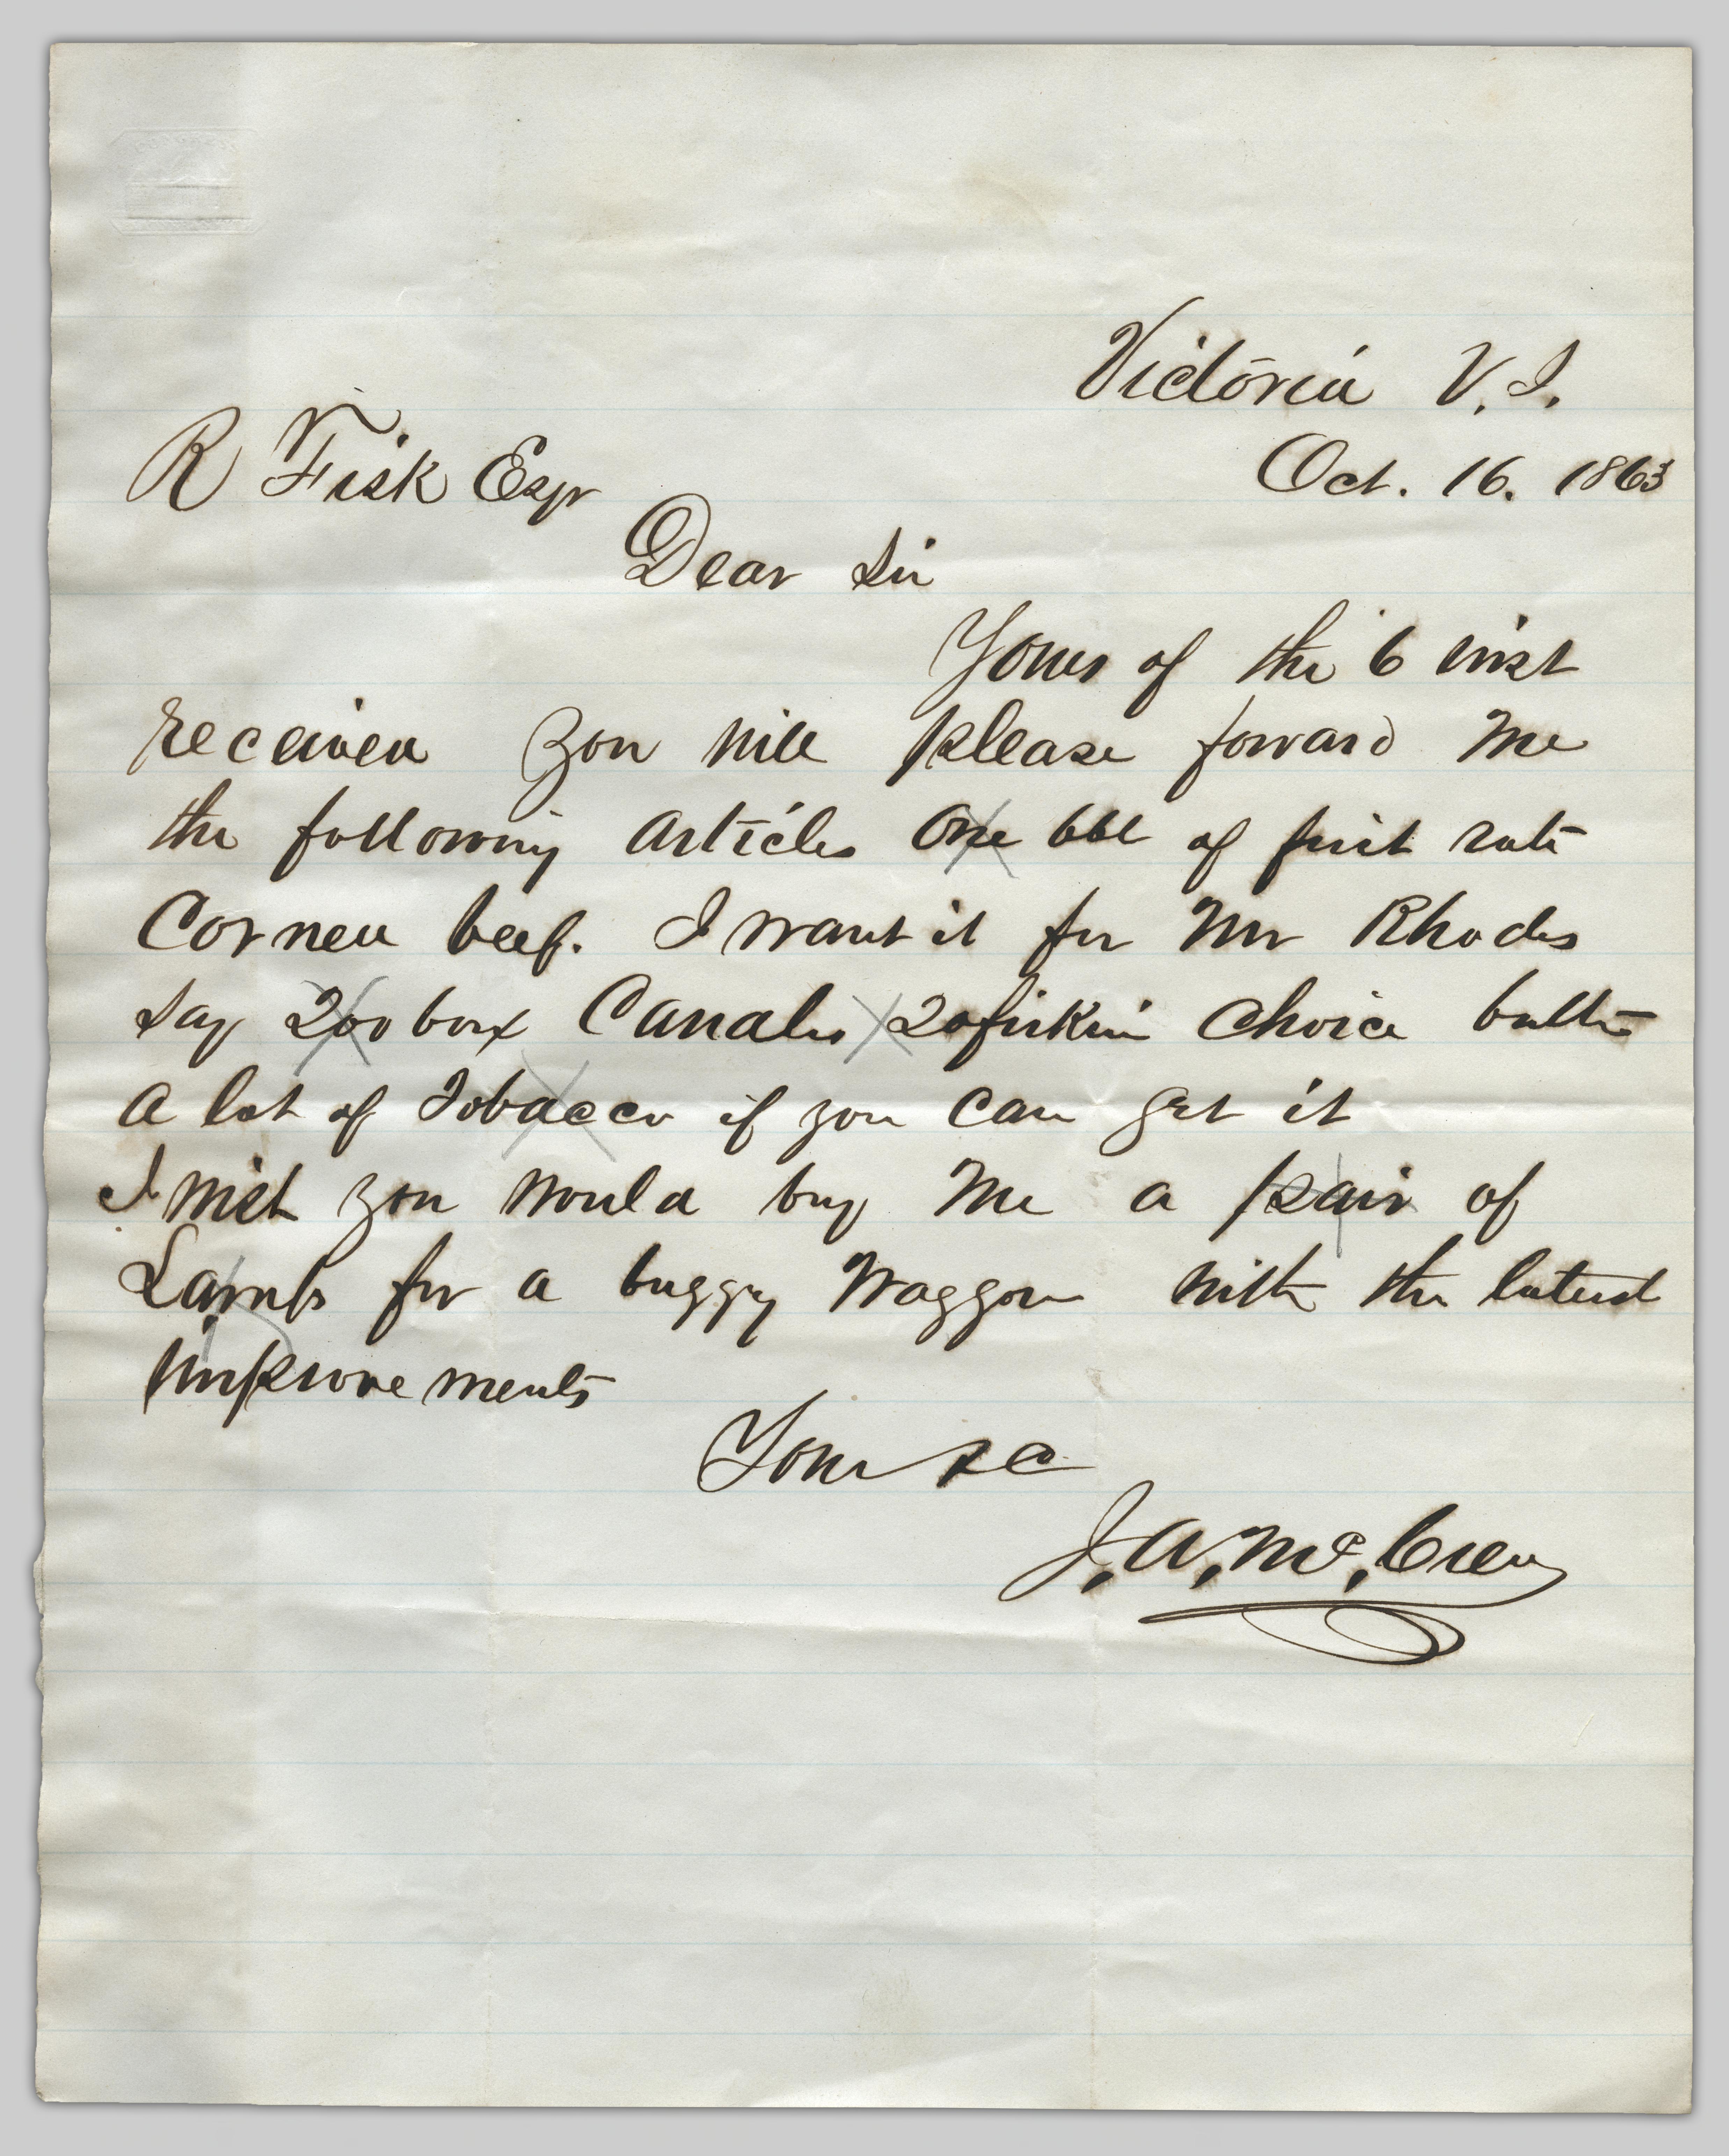 Victoria V.I.
Oct. 16. 1863
R Fisk Esqr
Dear Sir
Yours of the 6 inst
received you will please forward me
the following articles One bbl of first rate
Corned beef. I want it for Mr Rhodes
say 200 box Candles 20 firkin choice butter
a lot of Tobacco if you can get it
I wish you would buy me a pair of
Lamps for a buggy Waggon with the latest
improvements
Yours &c
J. A. Mc. Crea